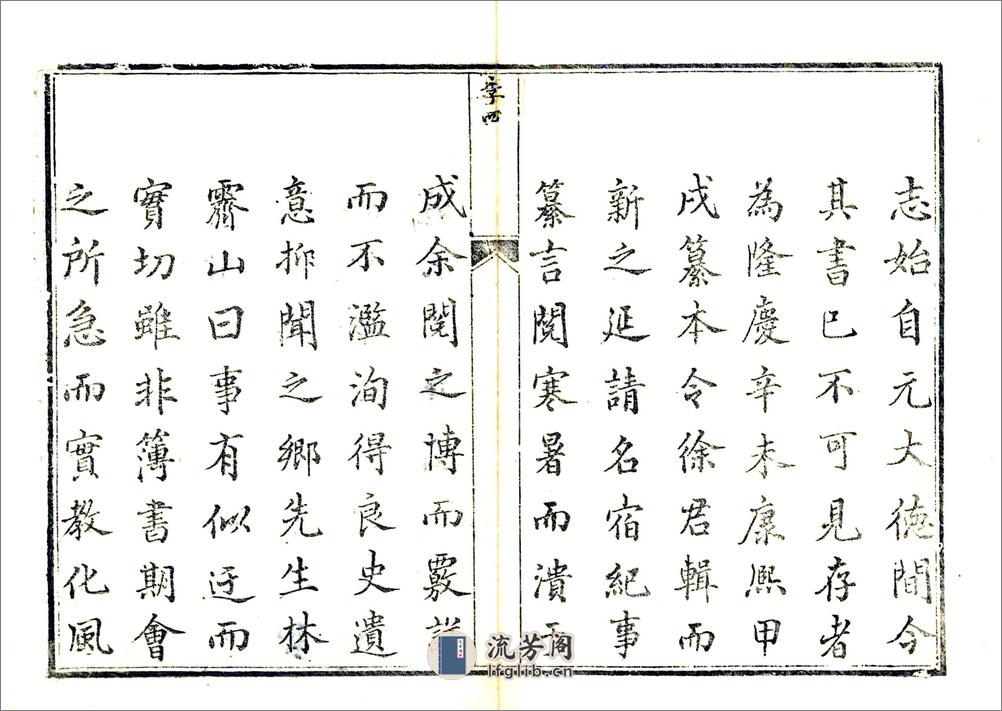 志始自元大徳間今
其書已不可見存者
為隆慶辛未康熙甲
戌纂本令徐君輯而
新之延請名宿紀事
纂言閱寒暑而潰于
序四
成余閱之博而覈詳
而不濫洵得良史遺
意抑聞之鄉先生林
霽山曰事有似迂而
實切雖非簿書期會
之所急而實教化風
流芳阁
lfglib.cn